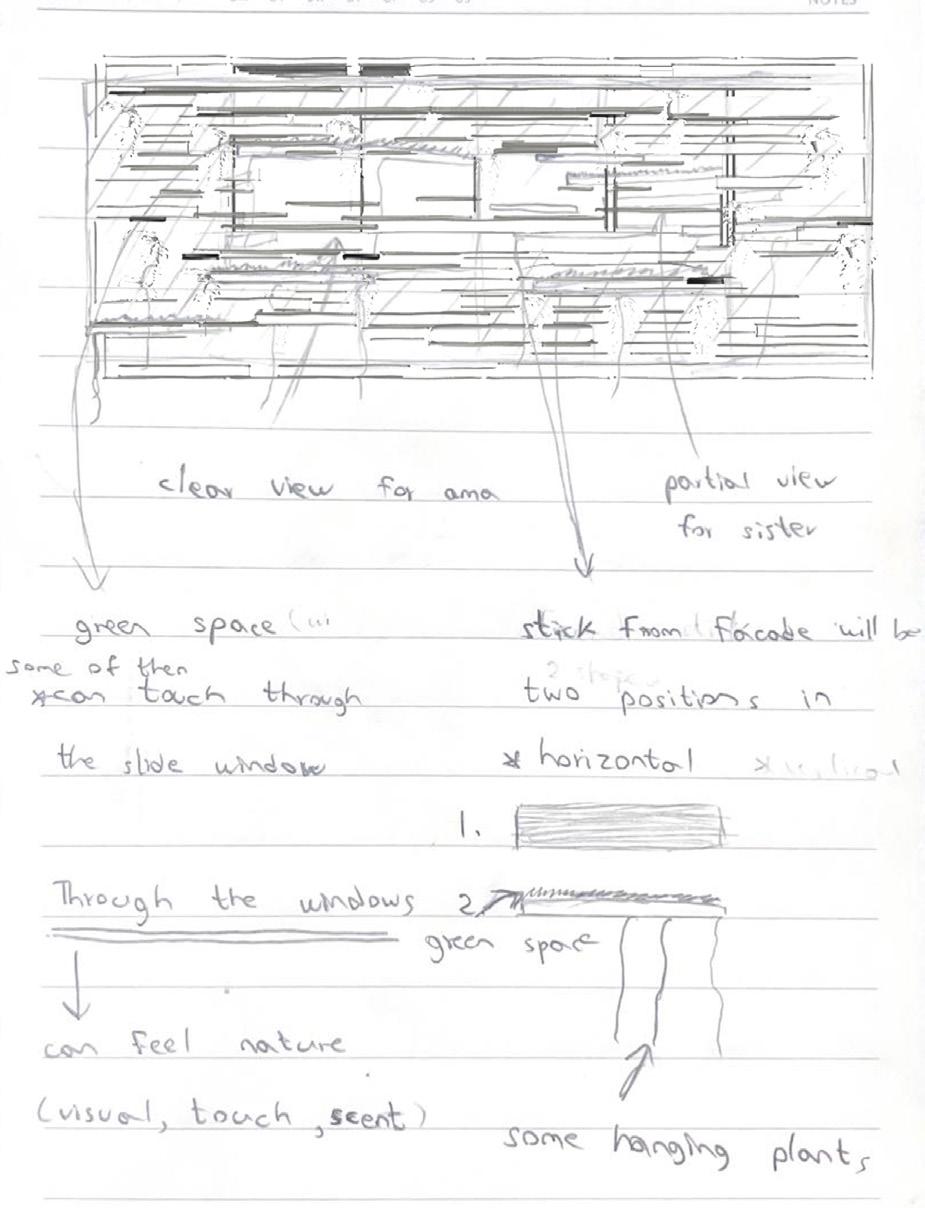 NOTES
clear view for ama
partial view
for sister
green space
some of then
*can touch through
the slide window
stick from facade will be
two positions in
* horizontal
1.
Through the windows
2.
green space
can feel nature
(visual, touch, scent)
some hanging plants